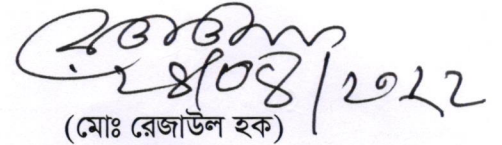 ২৪/০৪/২০২২
(মোঃ রেজাউল হক)